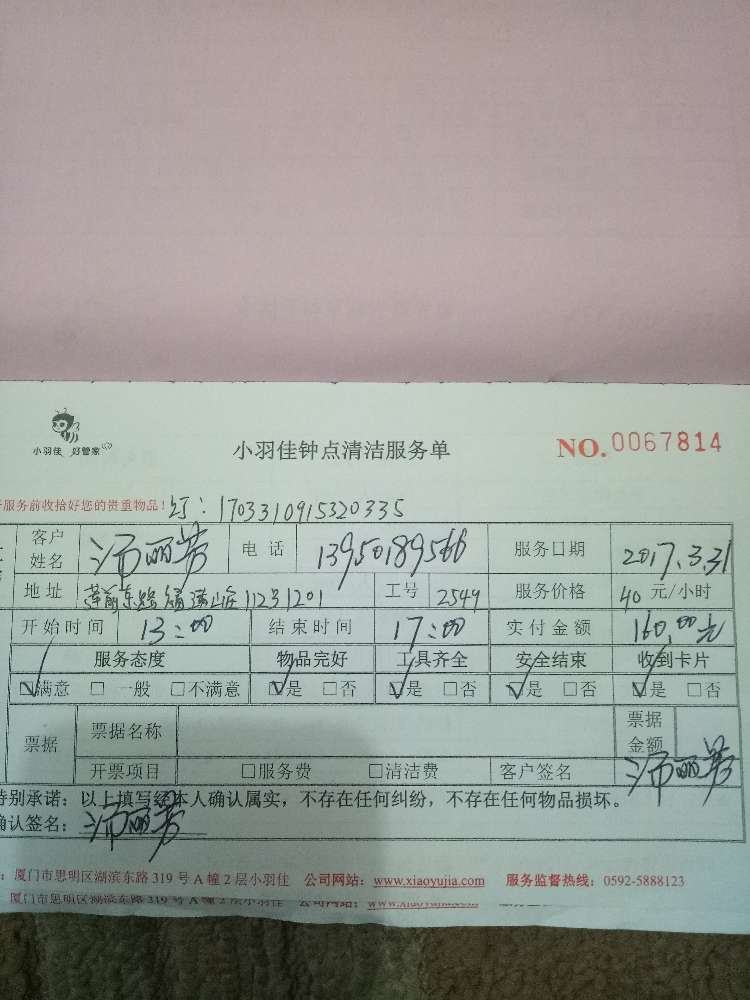 小羽佳 好管家
小羽佳钟点清洁服务单
NO.0067814
服务前收拾好您的贵重物品! 订:1703310915320335
客户姓名 沛丽芳 电话 13950189566 服务日期 2017.3.31
地址 112号1201 工号 2549 服务价格 40 元/小时
开始时间 13:00 结束时间 17:00 实付金额 160.00元
服务态度 物品完好 工具齐全 安全结束 收到卡片
☑满意 □一般 □不满意 ☑是 □否 ☑是 □否 ☑是 □否 ☑是 □否
票据 票据名称 票据金额
开票项目 □服务费 □清洁费 客户签名 沛丽芳
特别承诺:以上填写经本人确认属实,不存在任何纠纷,不存在任何物品损坏。
确认签名:沛丽芳
:厦门市思明区湖滨东路 319 号 A 幢 2 层小羽佳 公司网站:www.xiaoyujia.com 服务监督热线:0592-5888123
厦门市思明区湖滨东路 319 号 A 幢 2 层小羽佳 公司网站:www.xiaoyujia.com